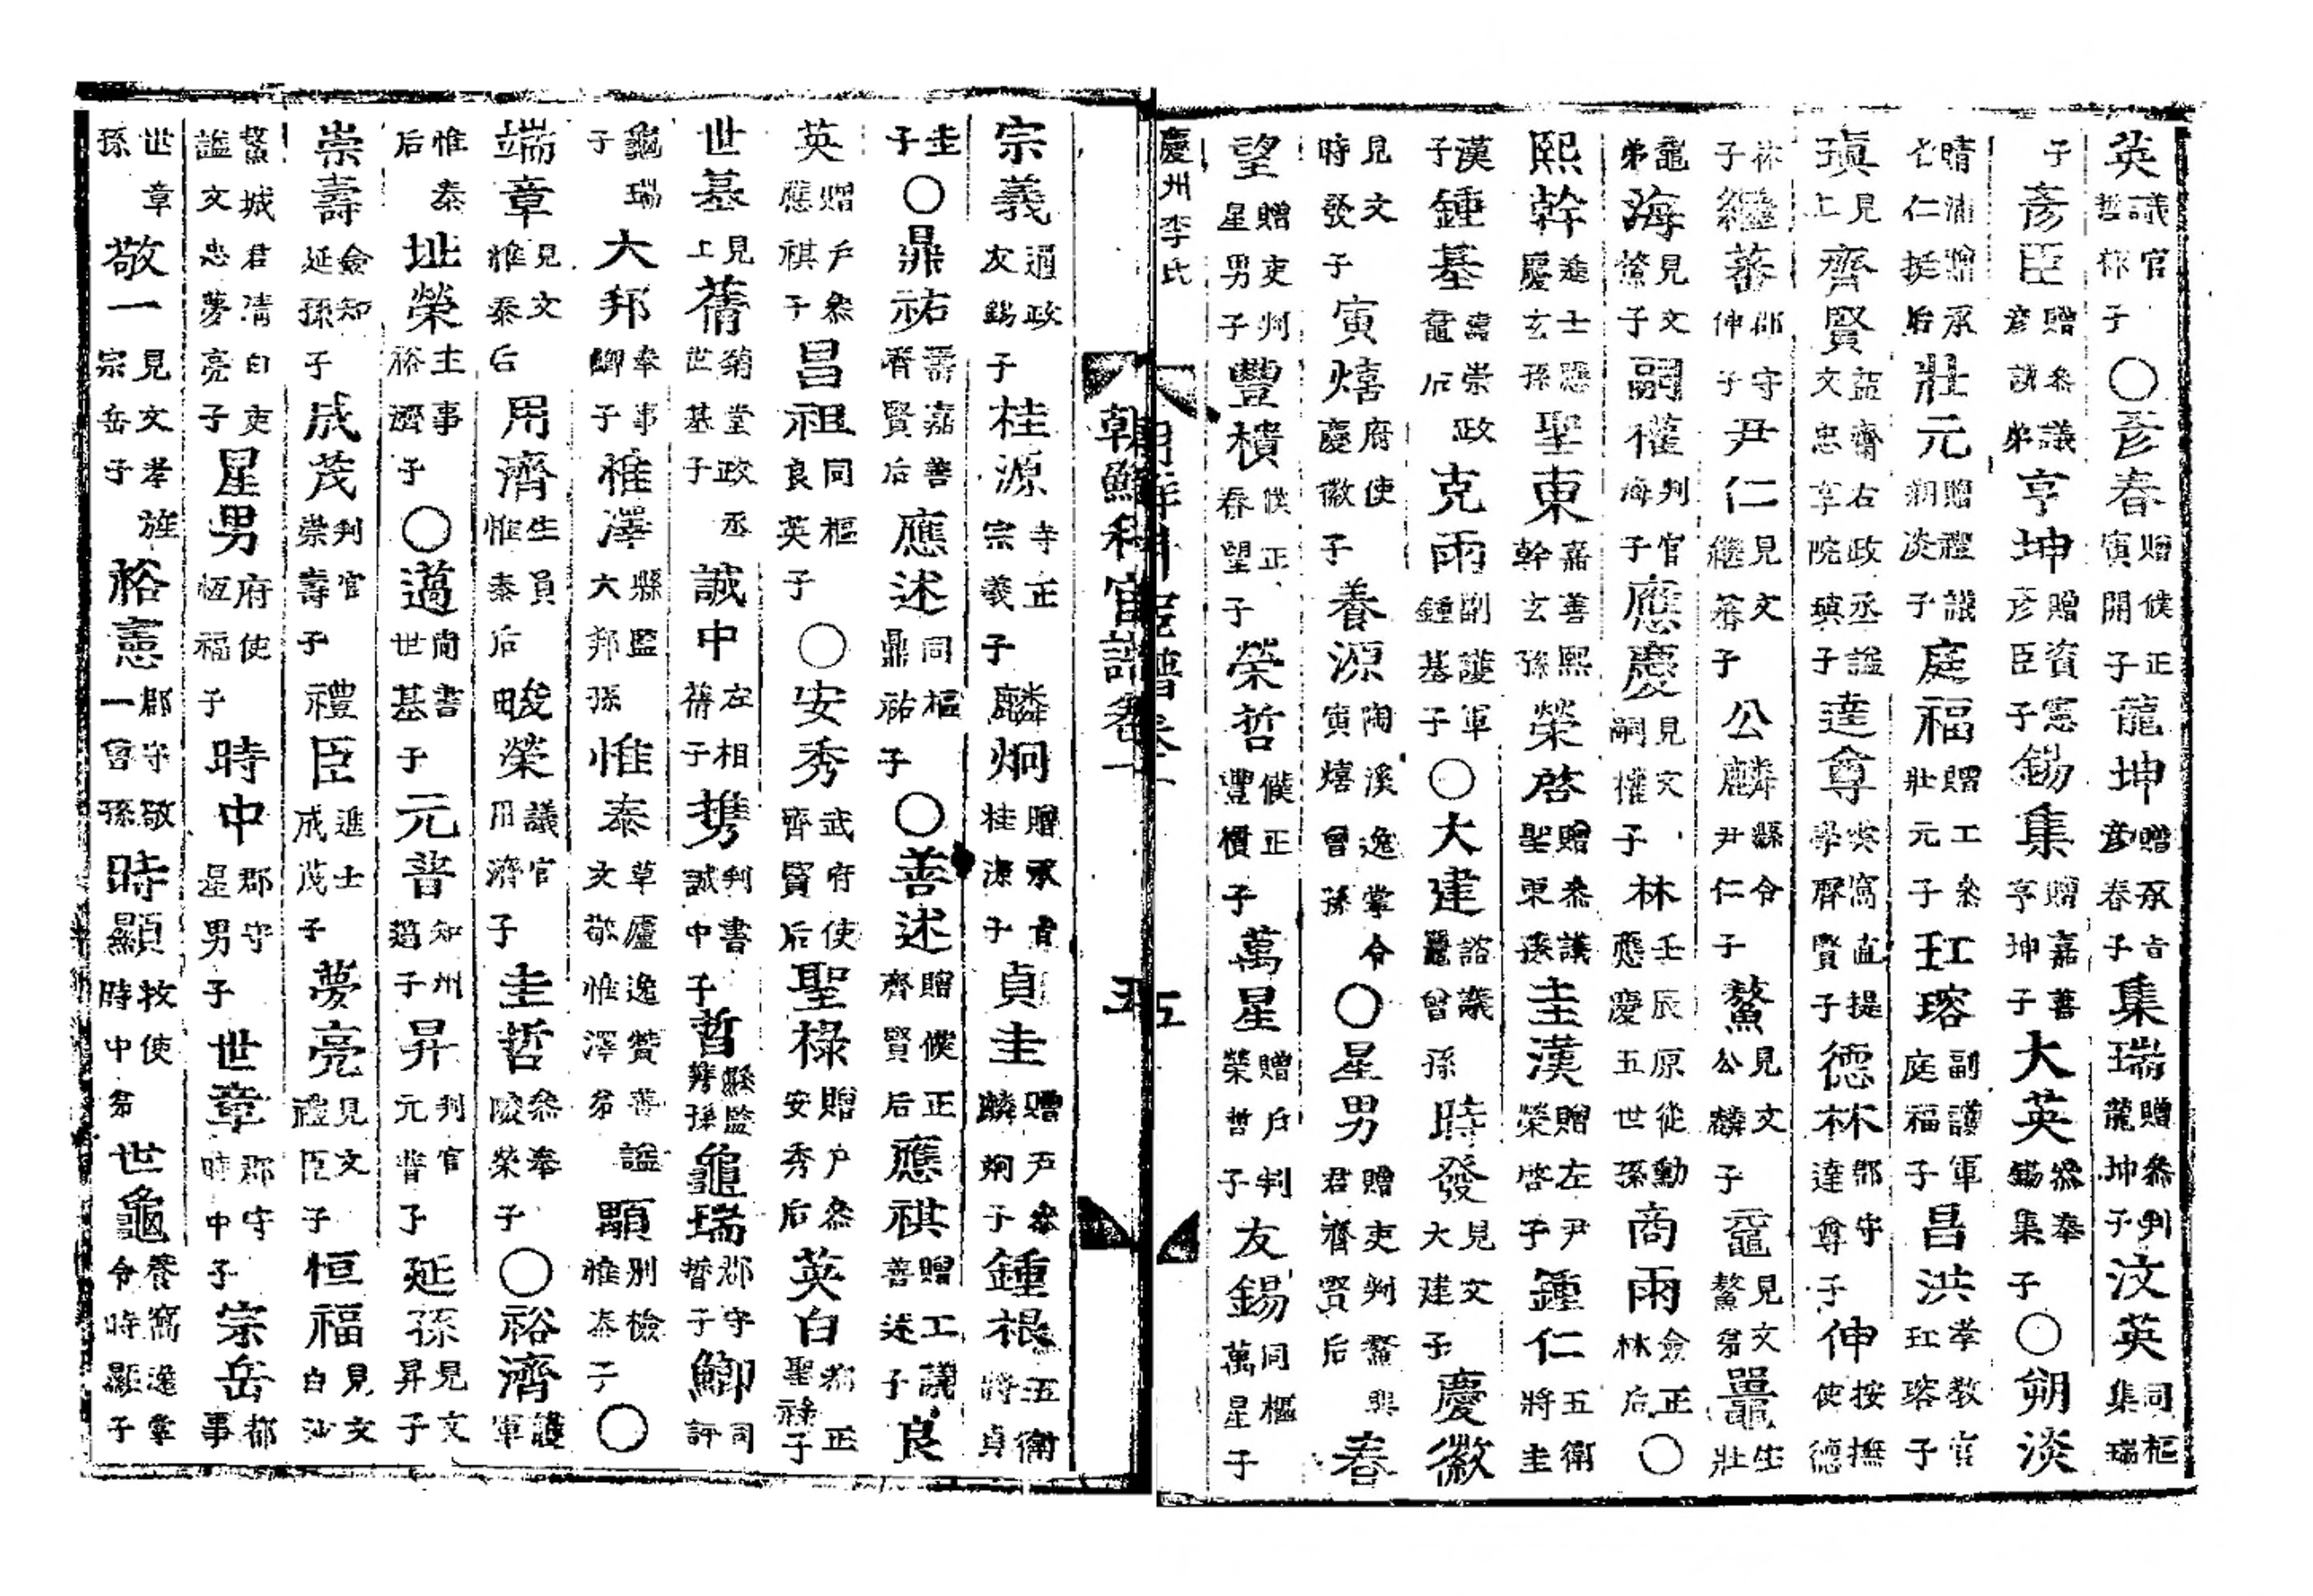 英議官哲林子○彦春贈僕正寅開子龍坤贈承旨彦春子集瑞贈參判龍坤子汶英同樞集瑞
子彦臣贈參議彦誠弟亨坤贈資憲彦臣子錫集贈嘉善亨坤子大英參奉錫集子○朔淡
晴浦贈承仁挺后壯元贈禮議朔淡子庭福贈工參壯元子玒瑢副護軍庭福子昌洪孝教官玒瑢子
瑱見上齊賢益齋右政丞謚文忠享院瑱子達尊窩直提學齊賢子德林郡守達尊子伸按撫使德
林子繼蕃郡守伸子尹仁見文繼蕃子公麟縣令尹仁子鰲見文公麟子黿見文鰲弟鼉生壯
黿弟海見文鰲子嗣權判官海子應慶見文嗣權子林壬辰原從勳應慶五世孫商雨僉正林后○
熙幹進士慶玄孫聖東嘉善熙幹玄孫榮啓贈參議聖東孫圭漢贈左尹榮啓子鍾仁五衛將圭
漢子鍾基壽崇政黿后克雨副護軍鍾基子○大建諮議鼉曾孫時發見文大建子慶徽
見文時發子寅熺府使慶徽子養源陶溪逸掌令寅熺曾孫○星男贈吏判鰲興君齊賢后春
望贈吏判星男子豐樻僕正春望子榮哲僕正豐樻子萬星贈戶判榮哲子友錫同樞萬星子
慶州李氏
朝鮮科宦譜卷一 五
宗義通政友錫子桂源寺正宗義子麟炯贈承旨桂源子貞圭贈戶參麟炯子鍾根五衛將貞
圭子○鼎祐壽嘉善齊賢后應述同樞鼎祐子○善述贈僕正齊賢后應祺贈工議善述子良
英贈戶參應祺子昌祖同樞良英子○安秀武府使齊賢后聖祿贈戶參安秀后英白都正聖祿子
世基見上蒨菊堂政丞世基子誠中左相蒨子携判書誠中子晢縣監携孫龜瑞郡守晢子鯽司評
龜瑞子大邦奉事鯽子惟澤縣監大邦孫惟泰草廬逸贊善謚文敬惟澤弟顯別檢惟泰子○
端章見文惟泰后用濟生員惟泰后畯榮議官用濟子圭哲參奉畯榮子○裕濟護軍
惟泰后址榮主事裕濟子○薖尚書世基子元普知州薖子昇判官元普子延孫見文昇子
崇壽僉知延孫子成茂判官崇壽子禮臣進士成茂子夢亮見文禮臣子恒福見文白沙
鰲城君清白吏謚文忠夢亮子星男府使恒福子時中郡守星男子世章郡守時中子宗岳都事
世章孫敬一見文孝旌宗岳子裕憲郡守敬一曾孫時顯牧使時中弟世龜養窩逸掌令時顯子